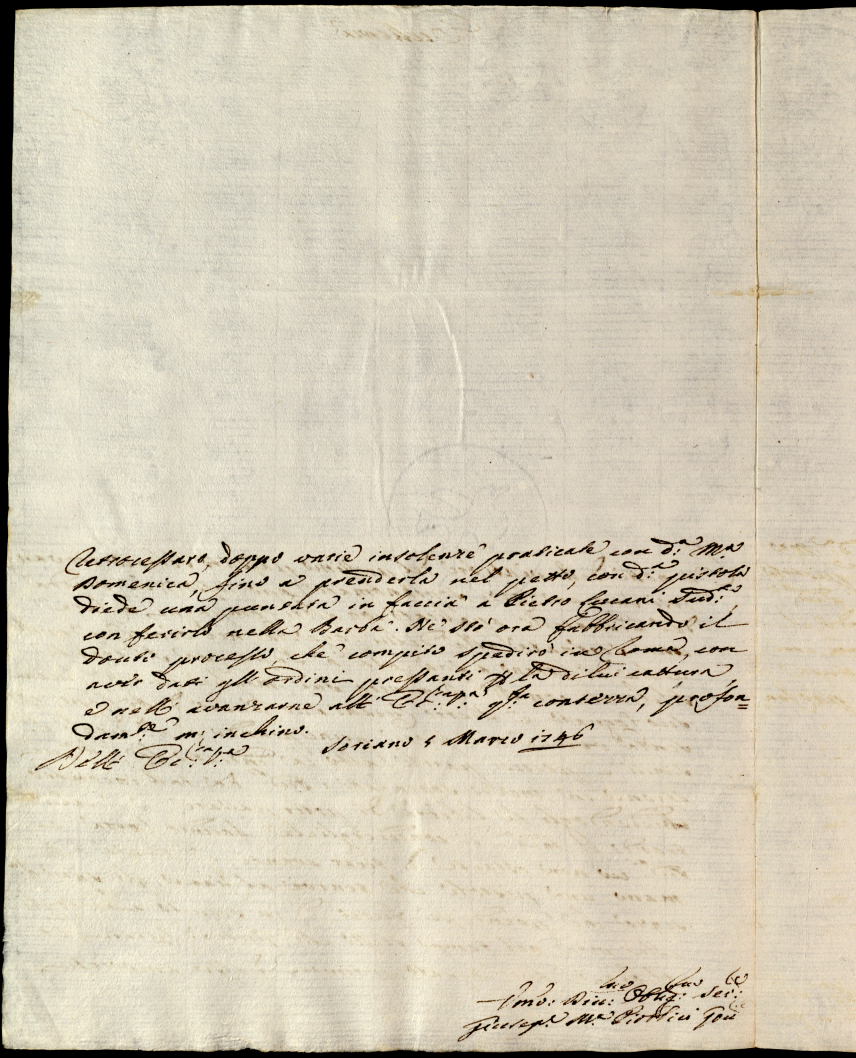 doppo varie insolenze praticate con d.a M.a
Domenica, fino a prenderla nel petto, con d.a pistola
diede una puntata in faccia a Pietro Sud.o
con ferirlo nella Barba. Ne stò ora fabbricando il
douto processo, che compito spedirò in Roma, con
aver dati gl'ordini pressanti p la di lui cattura,
e nell'avanzarne all' q.sta contezza, profon=
dam.te m'inchino.
Dell' Soriano 5 Marzo 1746
Div.mo Obbl.mo Ser.e
Giusep.e M.a Gov.e